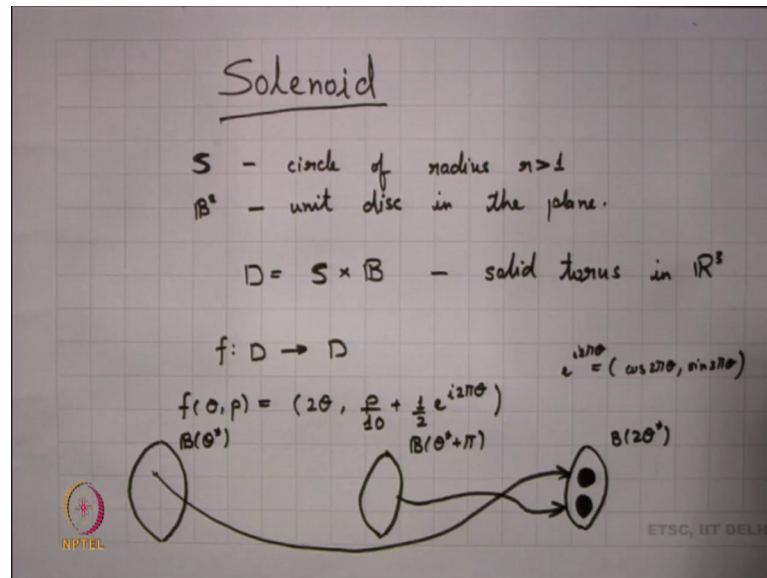 Solenoid
S - circle of radius r>1
B² - unit disc in the plane.
D = S × B - solid torus in ℝ³
f: D → D
e^{i2πθ} = (cos2πθ, sin2πθ)
f(θ,p) = (2θ, p/10 + 1/2 e^{i2πθ})
B(θ*) B(θ*+π) B(2θ*)
ETSC, IIT DELH
NPTEL